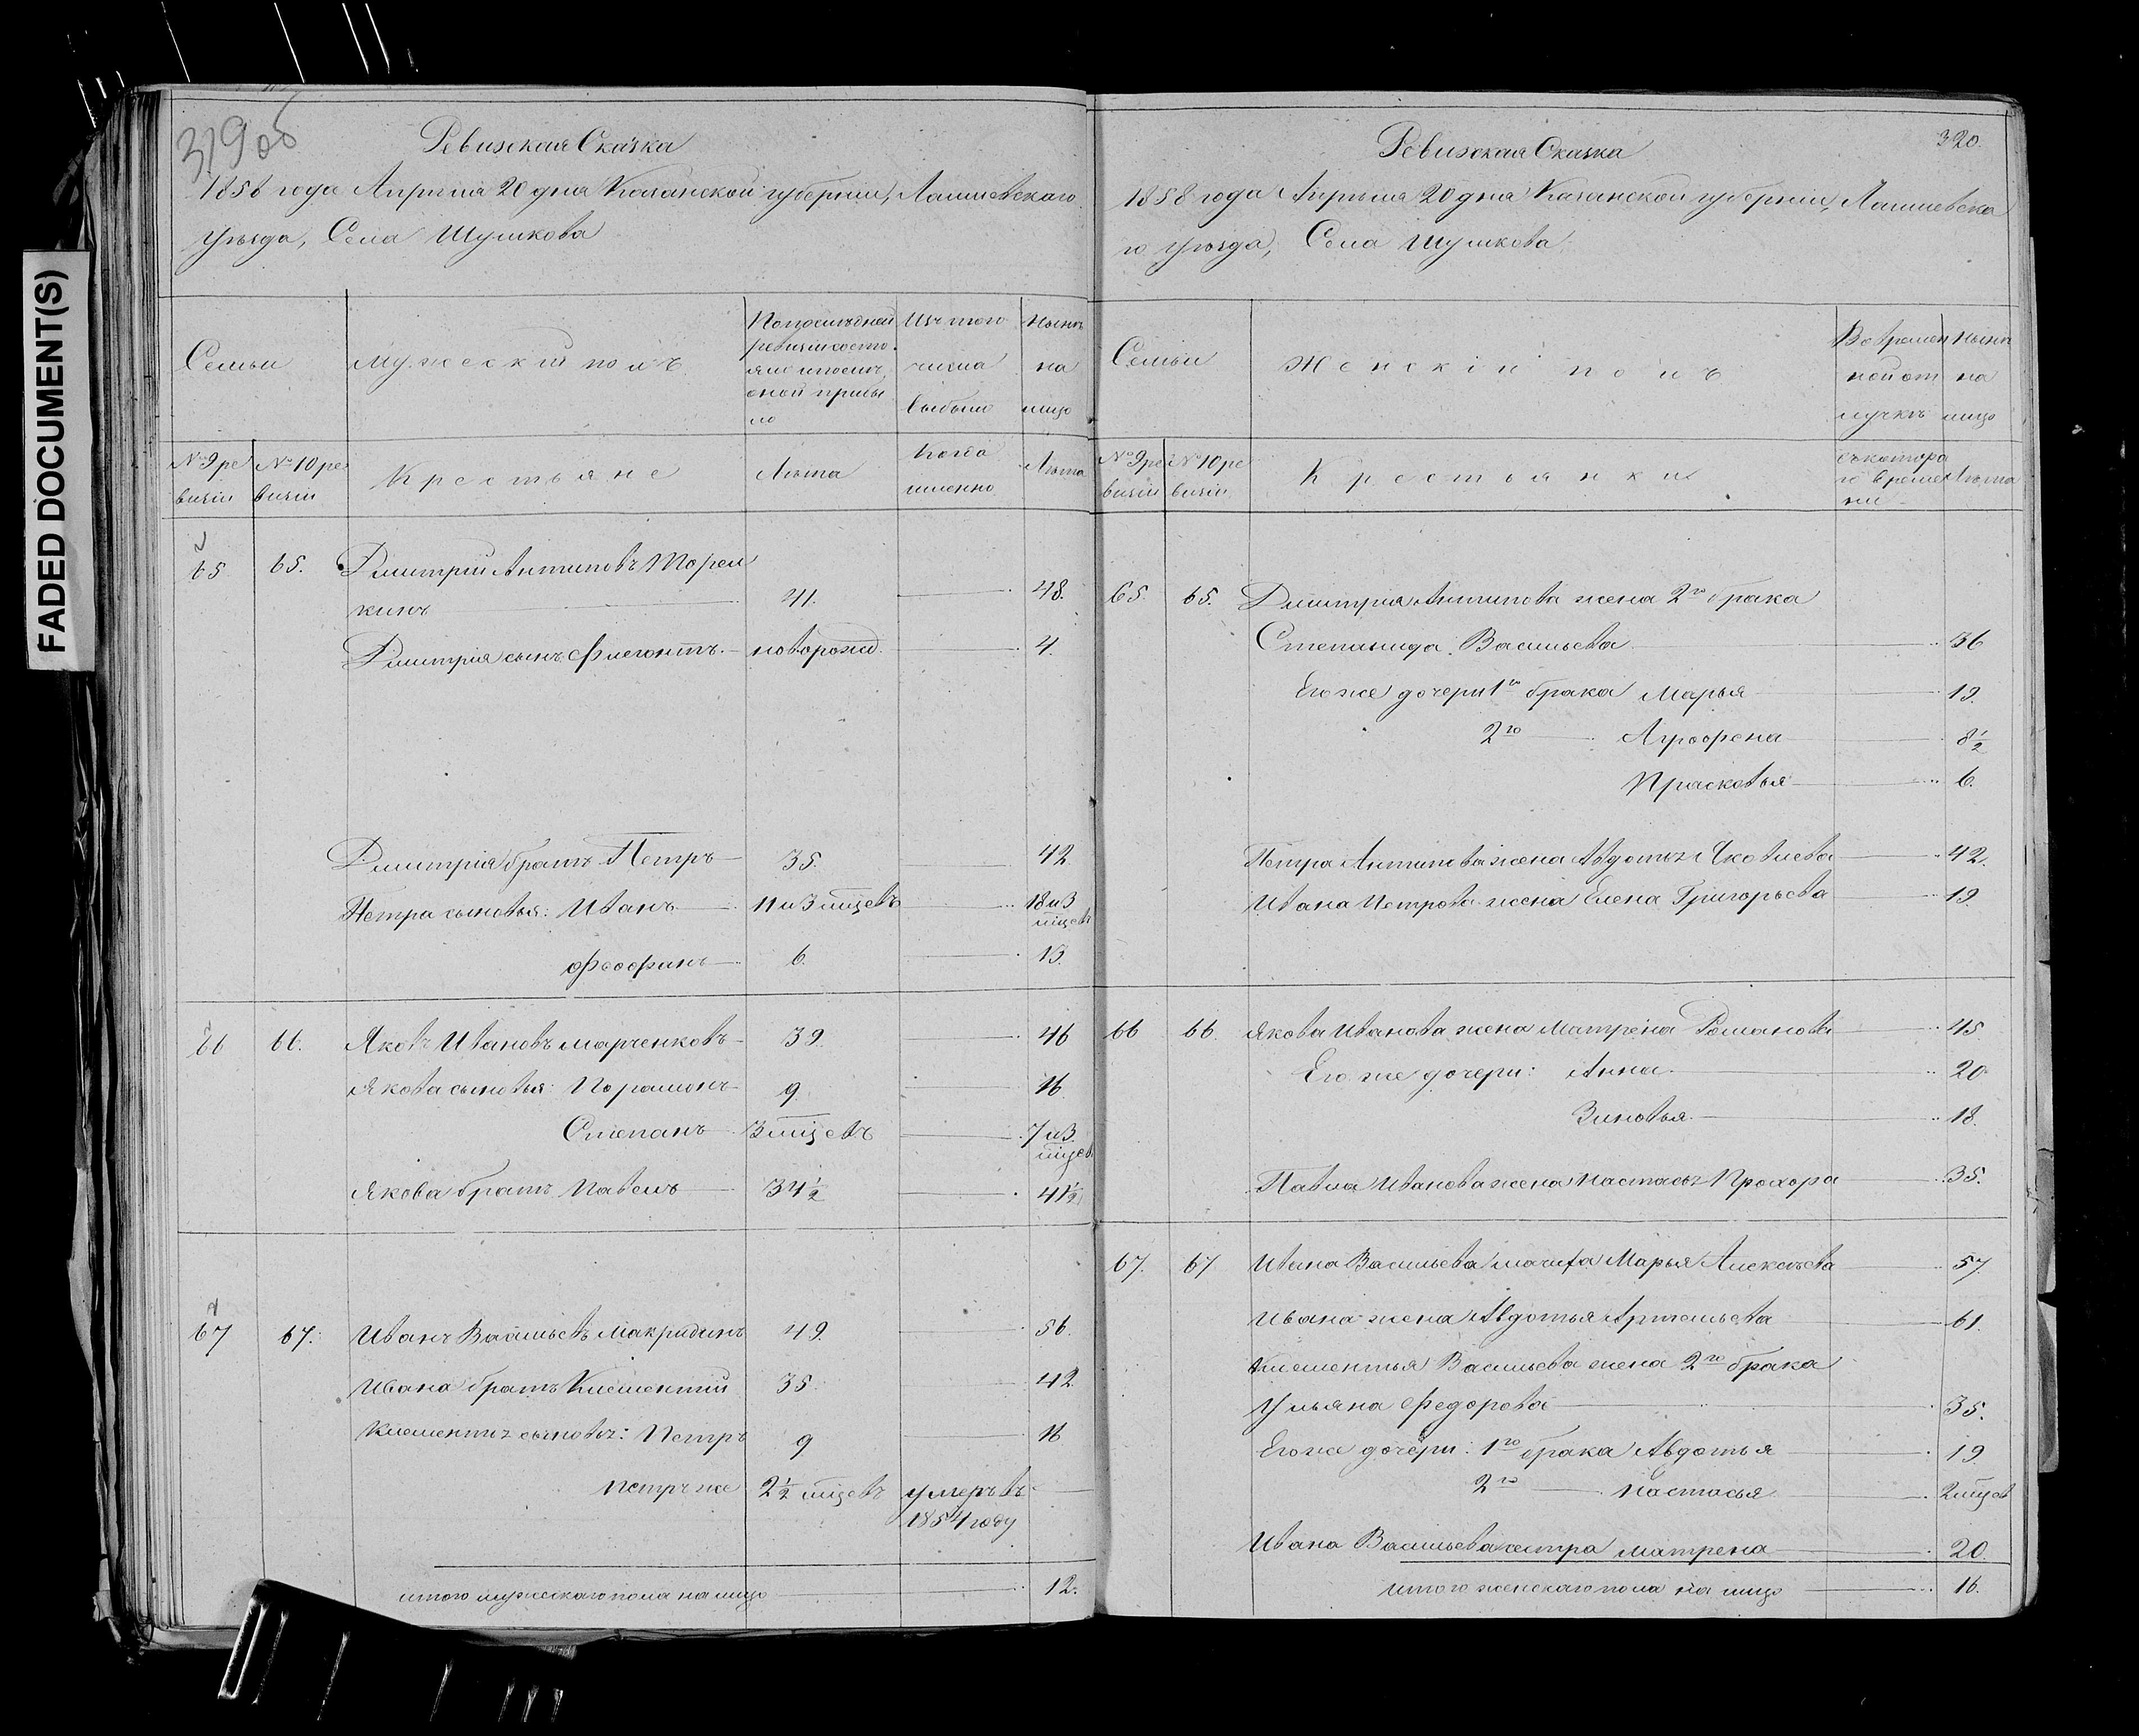 FADED DOCUMENT(S)
319об
Ревизская Сказка
1858 года Апрѣля 20 дня Казанской губерніи, Лаишевскаго
уѣзда, Села Шумкова
Семьи
Мужескій полъ
По послѣдней
ревизіи состо
яло и послѣ
оной прибы
ло
Изъ того
числа
выбыло
Нынѣ
на
лицо
№ 9 ре
визіи
№ 10 ре
визіи
Крестьяне
Лѣта
Когда
именно
Лѣта
65 65. Димитрій Антиповъ Торел
кинъ 41. 48.
Димитрія сынъ Флегонтъ. новорожд. 4.
Димитрія братъ Петръ 35. 42.
Петра сыновья: Иванъ 11 и 3 мцевъ 18 и 3
мцевъ
Феофанъ 6. 13.
66 66. Яковъ Ивановъ Марченковъ 39. 46
Якова сыновья: Порамонъ 9. 16
Степанъ 3 мцевъ 7 и 3
мцевъ
Якова братъ Павелъ 34 1/2 41 1/2
67 67. Иванъ Васильевъ Макридинъ 49. 56.
Ивана братъ Клементій 35. 42.
Клементія сыновья: Петръ 9 16
Петръ же 2 1/2 мцевъ умеръ въ
1854 году
итого мужескаго пола на лицо 12.
320.
Ревизская Сказка
1858 года Апрѣля 20 дня Казанской губерніи, Лаишевска
го уѣзда, Села Шумкова
Семьи
Женскій полъ
Во времен
ной от
лучкѣ
Нынѣ
на
лицо
№ 9 ре
визіи
№ 10 ре
визіи
Крестьянки
съ котора
го време
ни
Лѣта
65. 65. Димитрія Антипова жена 2го брака
Степанида Васильева 36
Его же дочери 1го брака Марья 19.
2го Агрофена 8 1/2
Прасковья 6.
Петра Антипова жена Авдотья Яковлева 42.
Ивана Петрова жена Елена Григорьева 19.
66 66. Якова Иванова жена Матрена Романова 45.
Его же дочери: Анна 20
Зиновья 18.
Павла Иванова жена Настасья Прохора 35.
67. 67 Ивана Васильева мачиха Марья Алексѣева 57.
Ивана жена Авдотья Артемьева 61.
Клементья Васильева жена 2го брака
Ульяна Федорова 35.
Его же дочери: 1го брака Авдотья 19
2го Настасья 2 мцев
Ивана Васильева сестра Матрена 20.
итого женскаго пола на лицо 16.